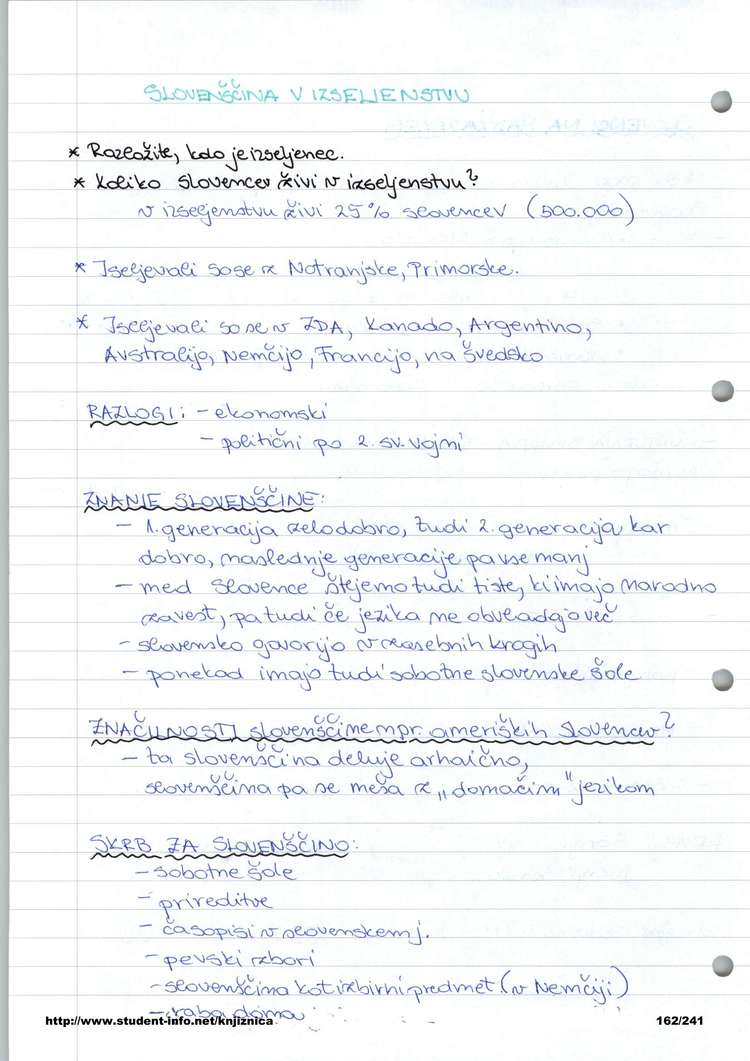 SLOVENŠČINA V IZSELJENSTVU
* Razložite, kdo je izseljenec.
* Koliko Slovencev živi v izseljenstvu?
v izseljenstvu živi 25% slovencev (500.000)
* Iseljevali so se z Notranjske, Primorske.
* Iseljevali so se v ZDA, Kanado, Argentino,
Avstralijo, Nemčijo, Francijo, na Švedsko
RAZLOGI: - ekonomski
- politični po 2. sv. vojni
ZNANJE SLOVENŠČINE:
- 1. generacija zelo dobro, tudi 2. generacija kar
dobro, naslednje generacije pa vse manj
- med Slovence štejemo tudi tiste, ki imajo narodno
zavest, pa tudi če jezika ne obvladajo več
- slovensko govorijo v zasebnih krogih
- ponekod imajo tudi sobotne slovenske šole
ZNAČILNOSTI slovenščine npr. ameriških Slovencev?
- ta slovenščina deluje arhaično,
slovenščina pa se meša z „domačim" jezikom
SKRB ZA SLOVENŠČINO:
- sobotne šole
- prireditve
- časopisi v slovenskem j.
- pevski zbori
- slovenščina kot izbirni predmet (v Nemčiji)
- raba doma
http://www.student-info.net/knjiznica 162/241